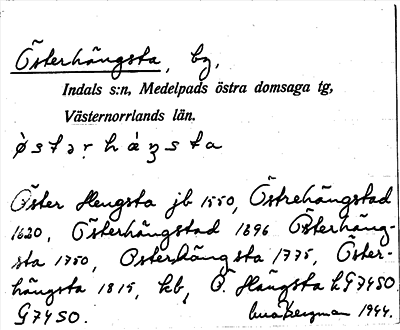 Österhängsta, by,
Indals s:n, Medelpads östra domsaga tg,
Västernorrlands län.
Öster Hengsta jb 1550, Östrehängstad
1620, Österhängstad 1696 Österhäng-
sta 1750, Österhängsta 1775, Öster-
hängsta 1815, kb, Ö. Hängsta LG7450
G7450. Bergman 1944.